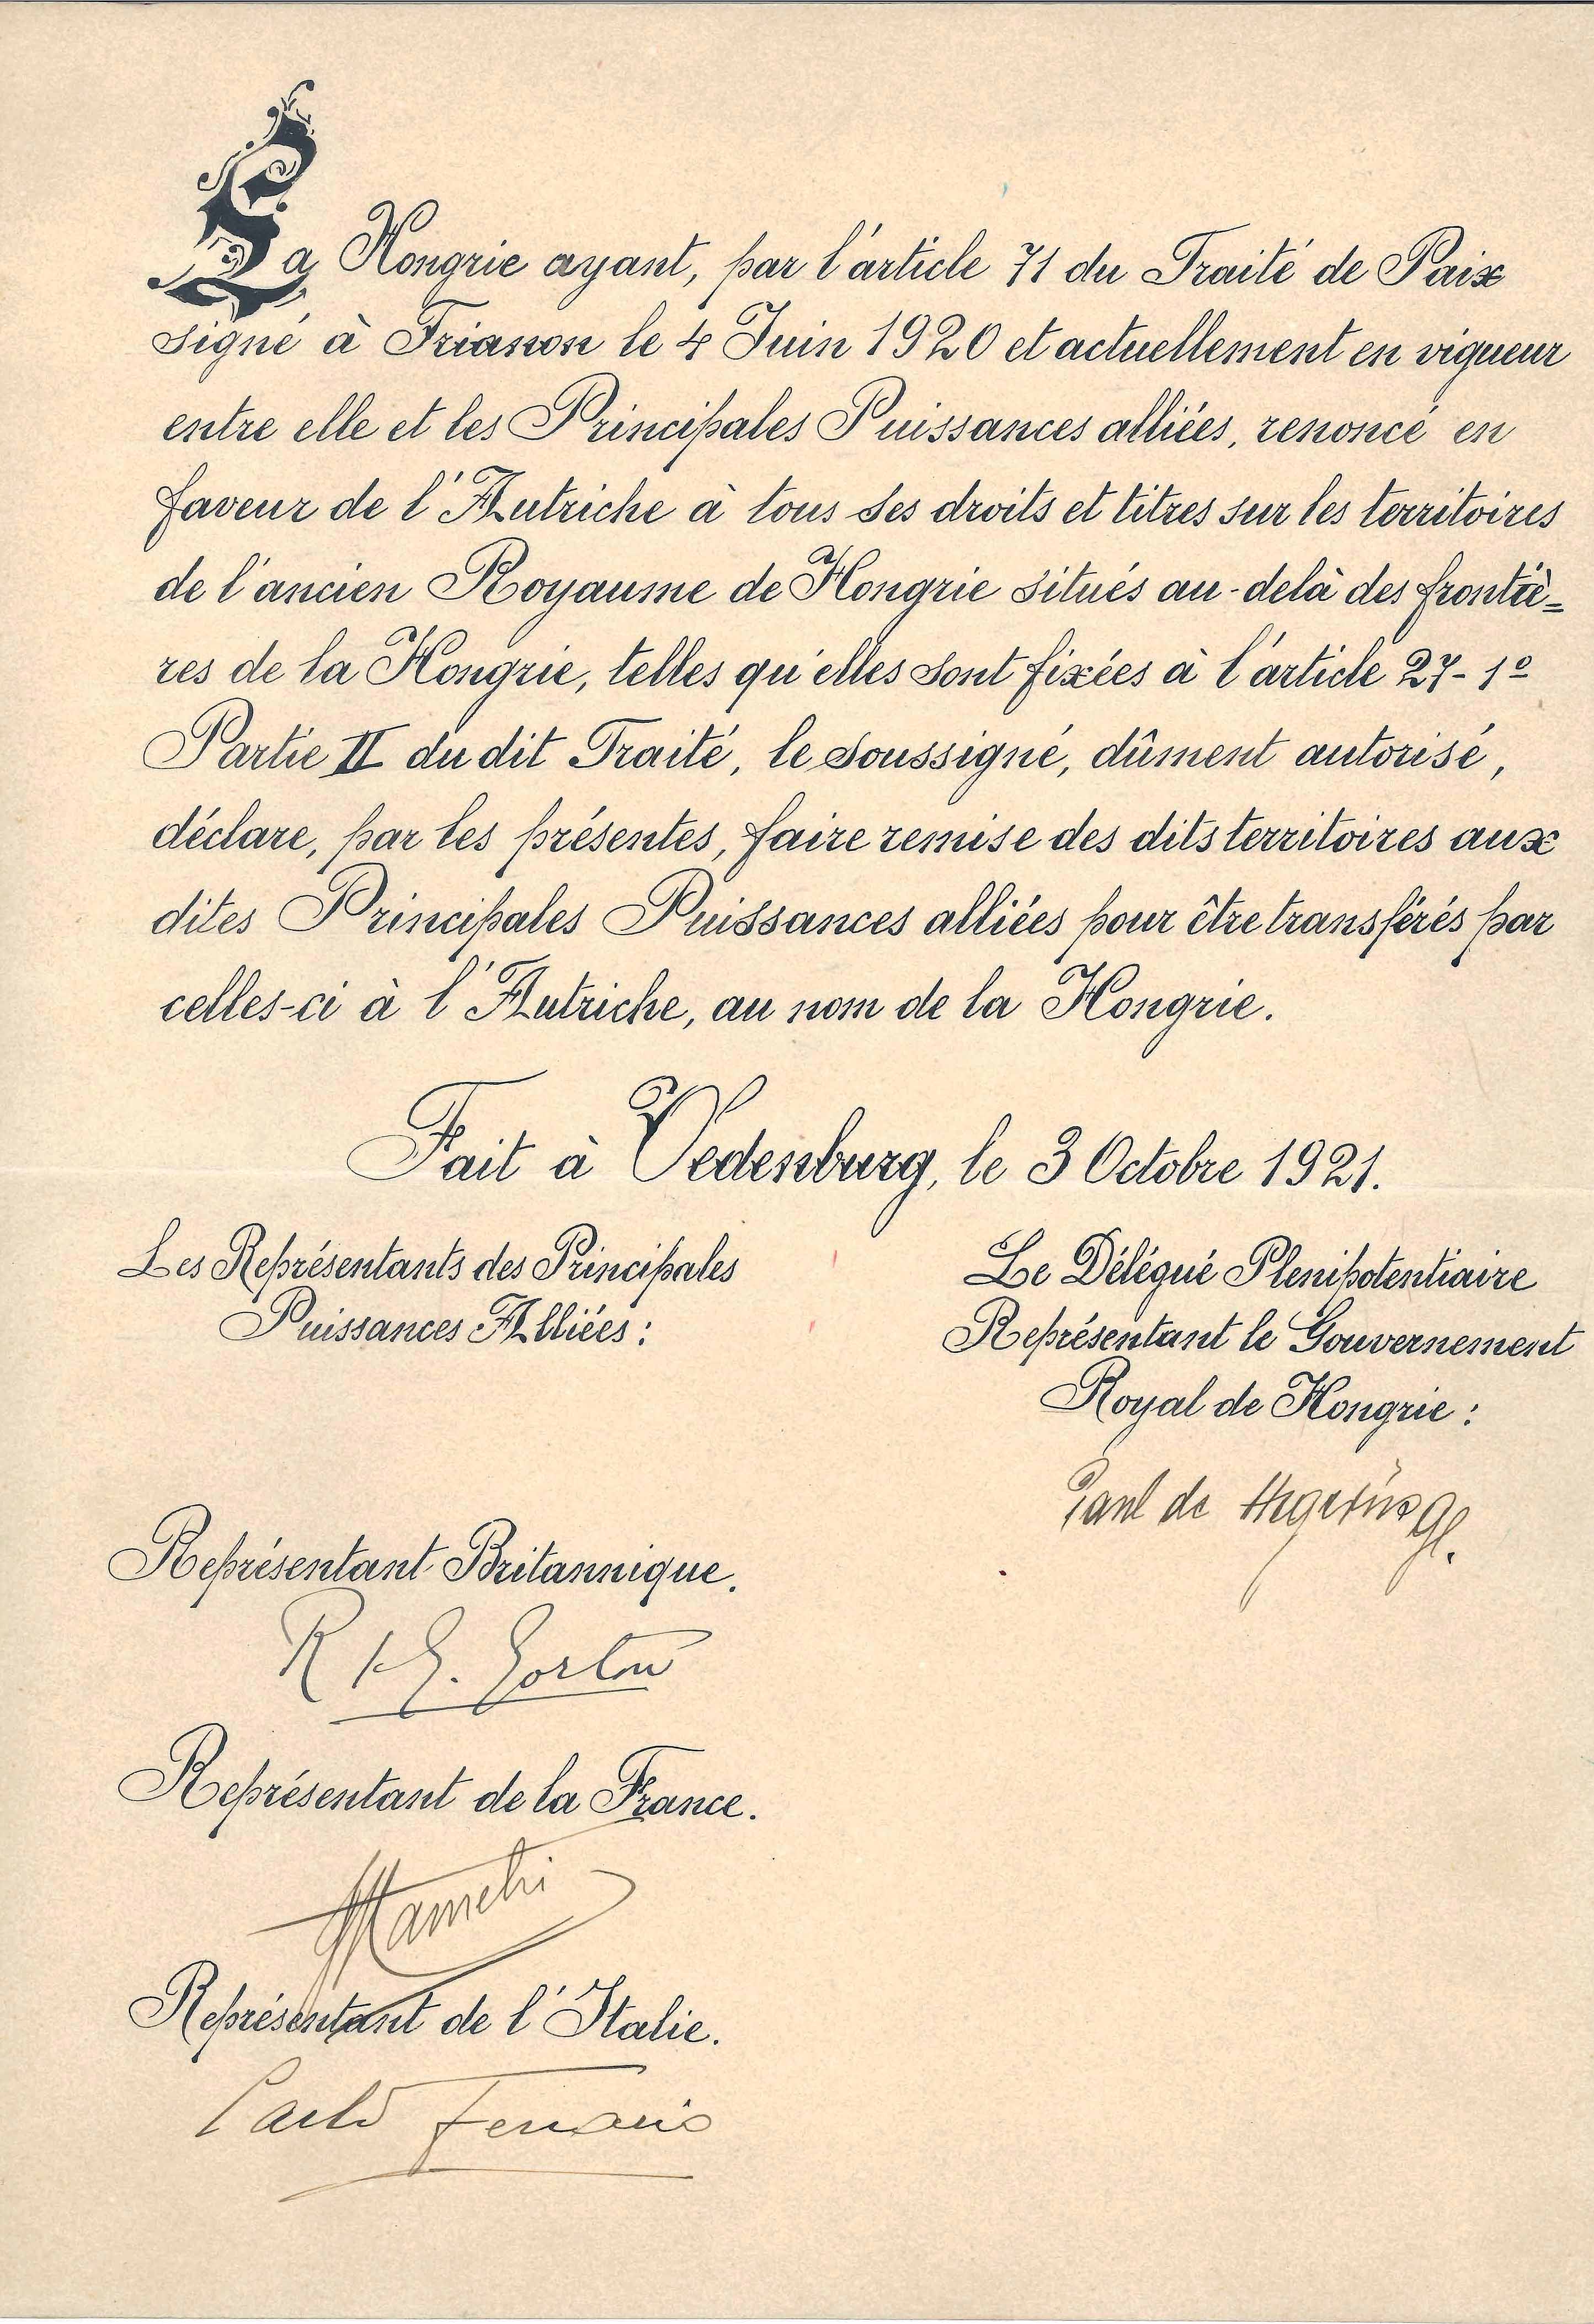 La Hongrie ayant, par l'article 71 du Traité de Paix
signé à Trianon le 4 Juin 1920 et actuellement en vigueur
entre elle et les Principales Puissances alliées, renoncé en
faveur de l'Autriche à tous ses droits et titres sur les territoires
de l'ancien Royaume de Hongrie situés au-delà des frontiè=
res de la Hongrie, telles qu'elles sont fixées à l'article 27-1º
Partie II du dit Traité, le soussigné, dûment autorisé,
déclare, par les présentes, faire remise des dits territoires aux
dites Principales Puissances alliées pour être transférés par
celles-ci à l'Autriche, au nom de la Hongrie.
Fait à Oedenburg, le 3 Octobre 1921.
Les Représentants des Principales
Puissances Alliées:
Le Délégué Plenipotentiaire
Représentant le Gouvernement
Royal de Hongrie:
Paul de
Représentant Britannique.
R Gorton
Représentant de la France.
Représentant de l'Italie.
Carlo Ferrario